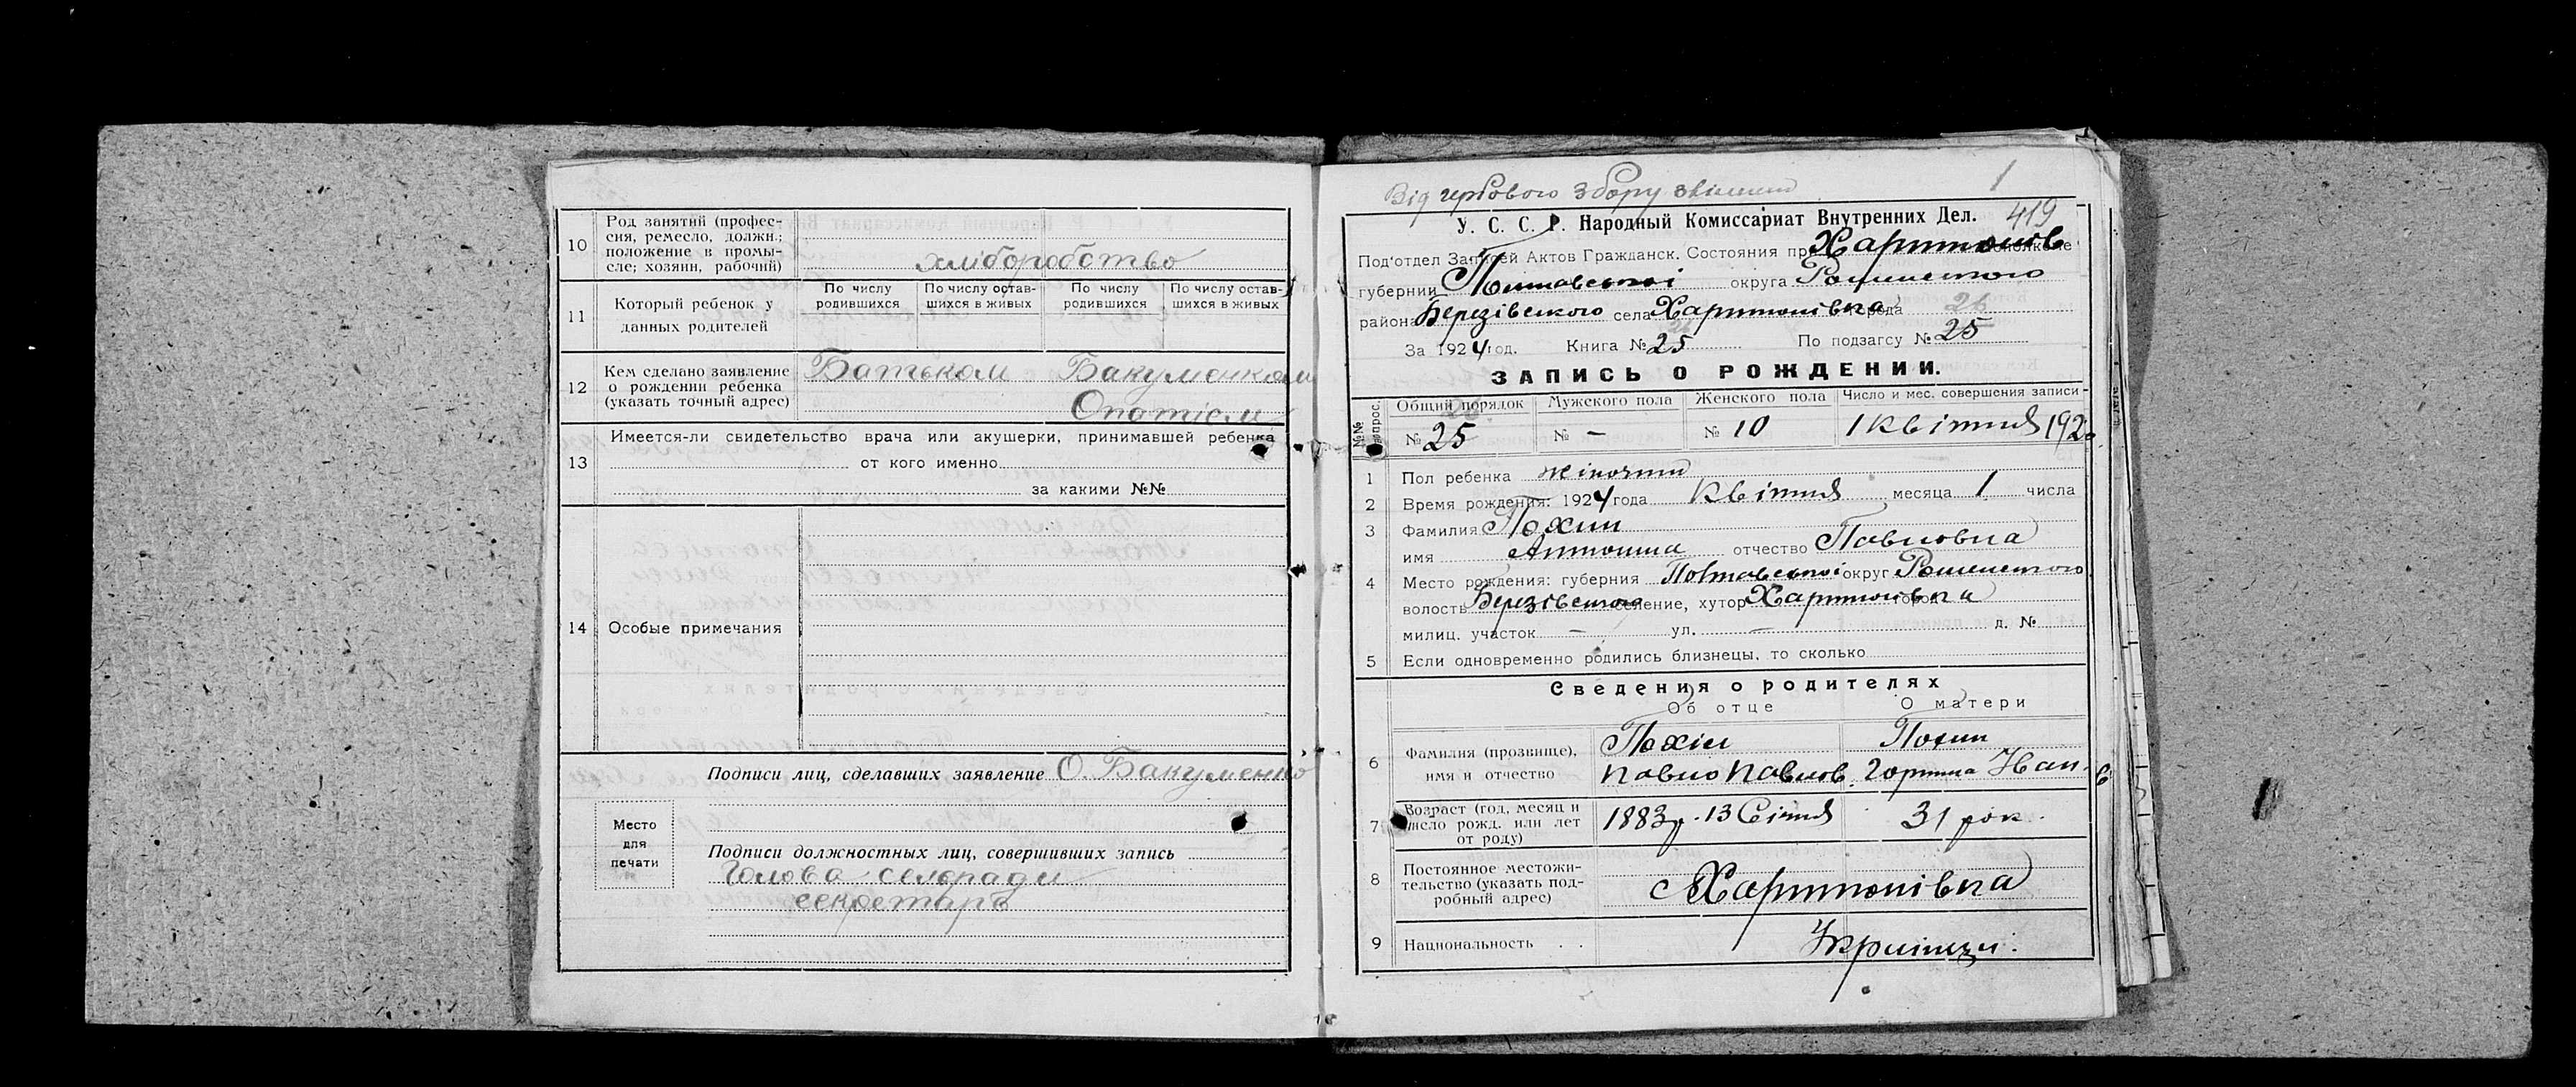 10 Род занятий (профес-
сия, ремесло, должн.;
положение в промы-
сле; хозяин, рабочий)
хліборобство
11 Который ребенок у
данных родителей
По числу родившихся По числу остав-шихся в живых По числу родившихся По числу остав-шихся в живых
12 Кем сделано заявление
о рождении ребенка
(указать точный адрес)
Батьком Бакуменком
Опатієм
13 Имеется-ли свидетельство врача или акушерки, принимавшей ребенка
от кого именно
за какими №№
14 Особые примечания
Подписи лиц, сделавших заявление О. Бакуменко
Место
для
печати
Подписи должностных лиц, совершивших запись
Голова сельради
секретарь
Від гербового збору звільнено
1
У. С. С. Р. Народный Комиссариат Внутренних Дел. 419
Под'отдел Записей Актов Гражданск. Состояния при
губернии Полтавської округа Роменського
района Березівського села Харитонівка города 26
За 1924 год. Книга № 25 По подзагсу № 25
ЗАПИСЬ О РОЖДЕНИИ.
Общий порядок Мужского пола Женского пола Число и мес. совершения записи
№ 25 № — № 10 1 Квітня 192
1 Пол ребенка жіночий
2 Время рождения: 1924 года Квітня месяца 1 числа
3 Фамилия Похил
имя Антонина отчество Павловна
4 Место рождения: губерния Полтавської округ Роменського
волость Березівського селение, хутор Харитонівка город
милиц. участок — ул. — д. №
5 Если одновременно родились близнецы, то сколько
Сведения о родителях
Об отце О матери
6 Фамилия (прозвище),
имя и отчество
Похил Похил
Павло Павлов. Горпина Иван.
7 Возраст (год, месяц и
число рожд. или лет
от роду)
1883 р. 13 Січня 31 рок.
8 Постоянное местожи-
тельство (указать под-
робный адрес)
с Харитонівка
9 Национальность . .
Українці.